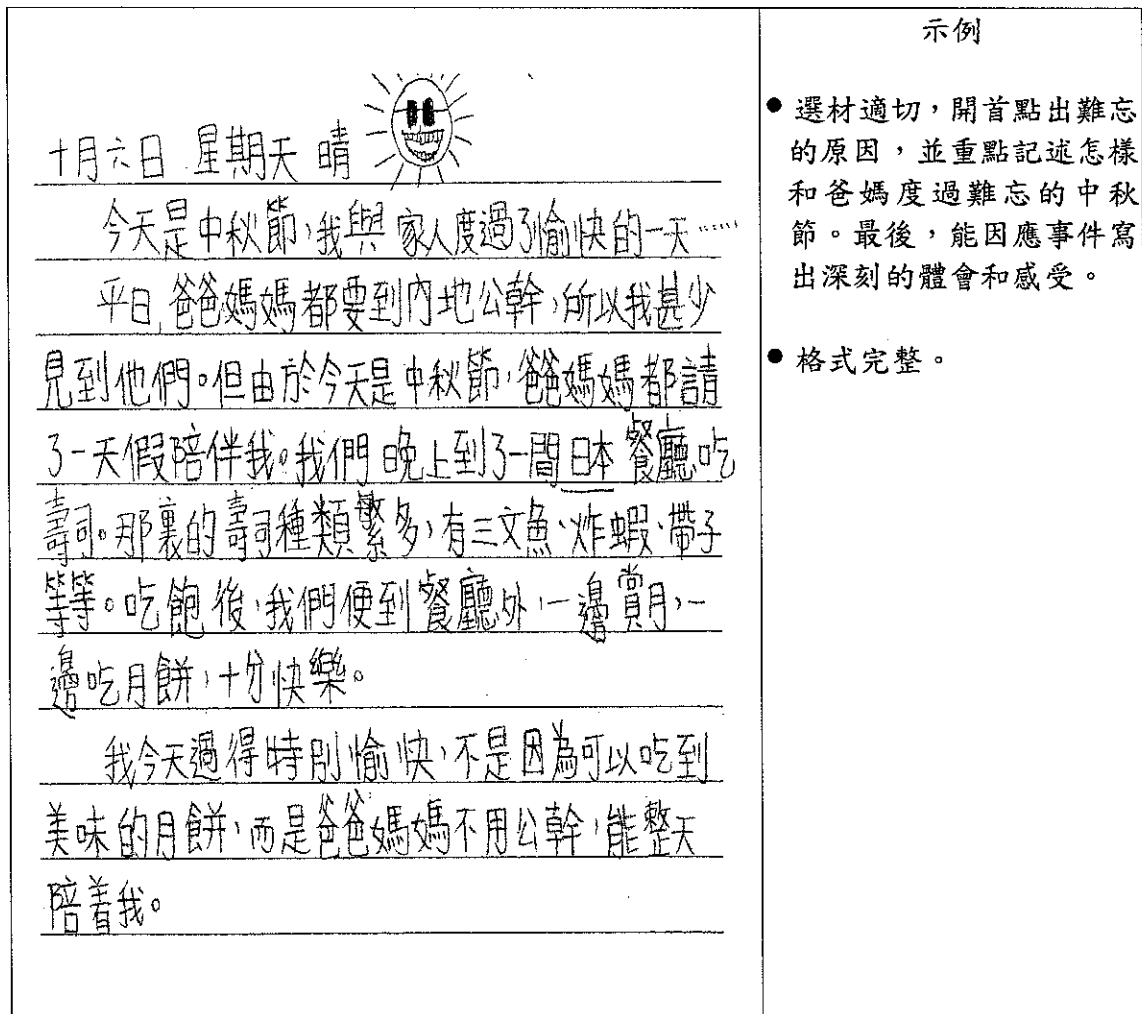 十月六日 星期天 晴
今天是中秋節，我與家人度過了愉快的一天……
平日，爸爸媽媽都要到內地公幹，所以我甚少
見到他們。但由於今天是中秋節，爸爸媽媽都請
了一天假陪伴我。我們晚上到了一間日本餐廳吃
壽司。那裏的壽司種類繁多，有三文魚、炸蝦、帶子
等等。吃飽後，我們便到餐廳外，一邊賞月，一
邊吃月餅，十分快樂。
我今天過得特別愉快，不是因為可以吃到
美味的月餅，而是爸爸媽媽不用公幹，能整天
陪着我。
示例
● 選材適切，開首點出難忘
的原因，並重點記述怎樣
和爸媽度過難忘的中秋
節。最後，能因應事件寫
出深刻的體會和感受。
● 格式完整。